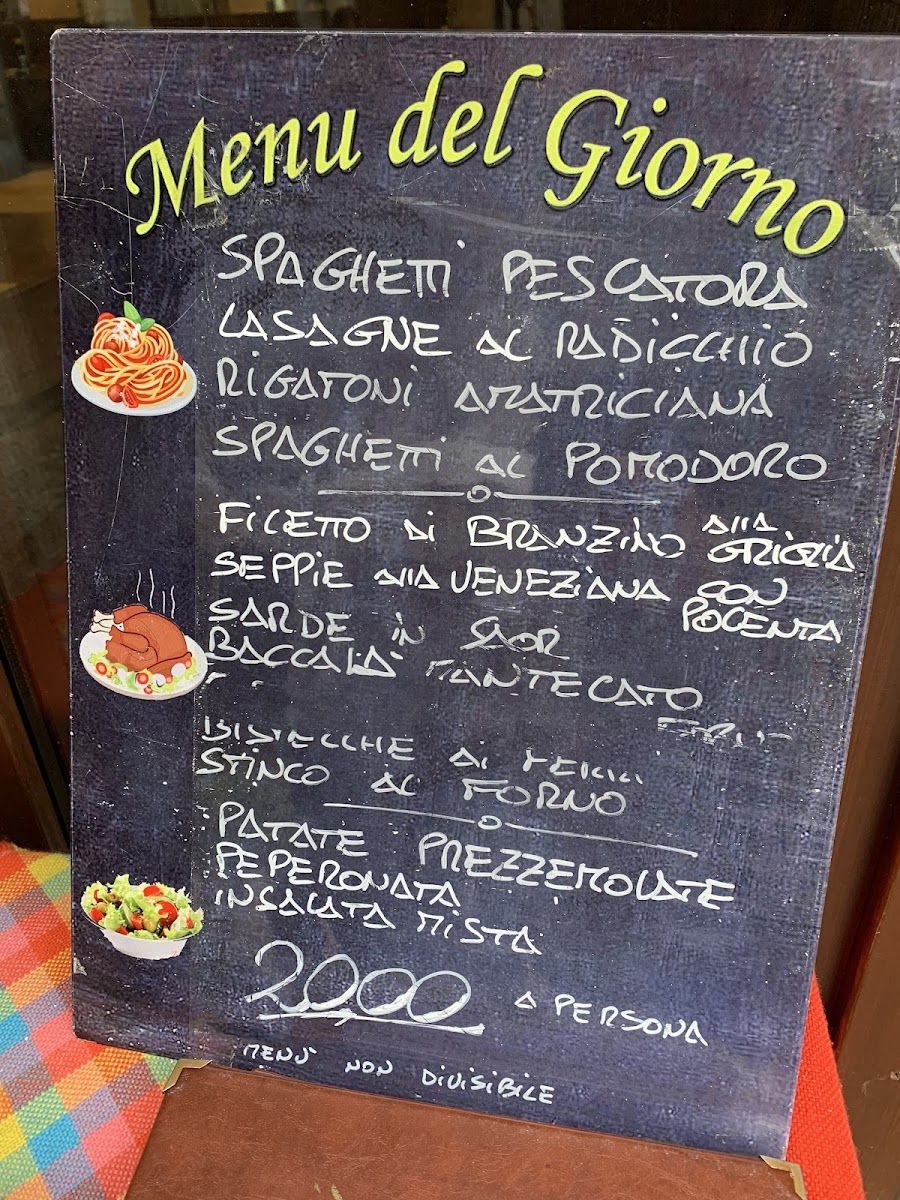 Menu del Giorno
SPAGHETTI PESCATORA
LASAGNE AL RADICCHIO
RIGATONI AMATRICIANA
SPAGHETTI AL POMODORO
FILETTO DI BRANZINO ALLA GRIGLIA
SEPPIE ALLA VENEZIANA CON POLENTA
SARDE IN SAOR
BACCALÀ MANTECATO
BISTECCHE AI FERRI
STINCO AL FORNO
PATATE PREZZEMOLATE
PEPERONATA
INSALATA MISTA
20,00 A PERSONA
MENÙ NON DIVISIBILE